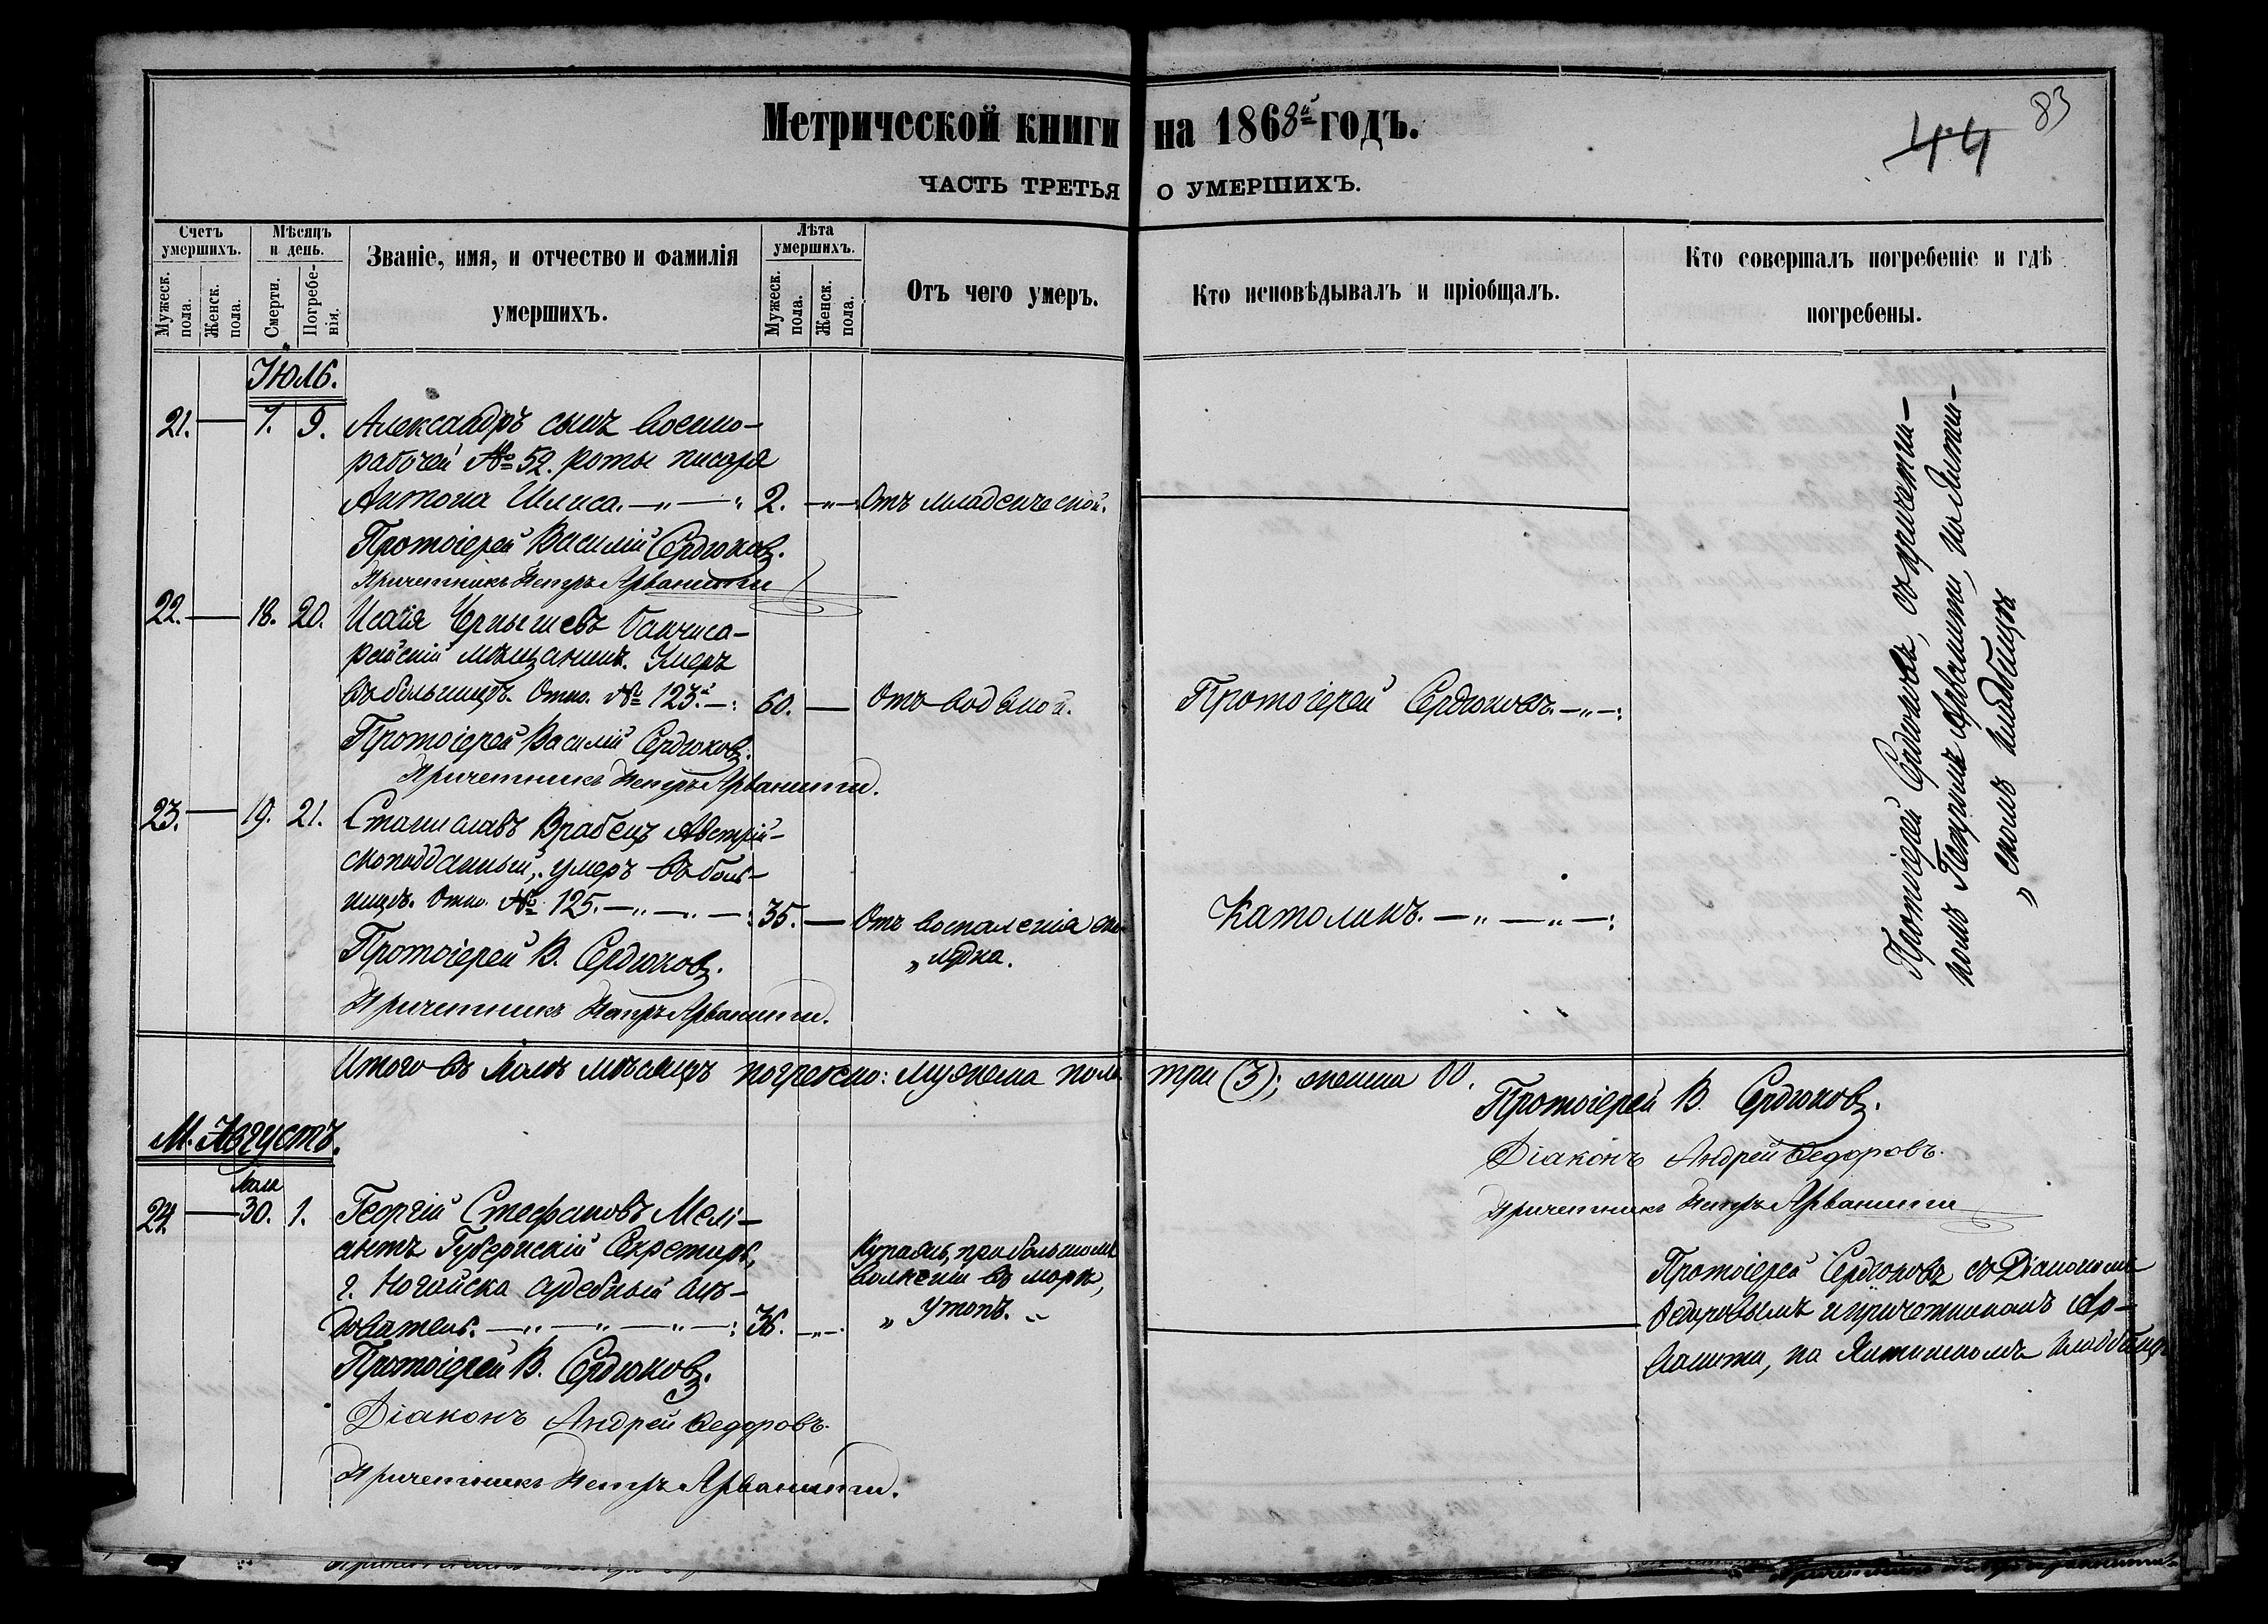 Метрической книги на 1868й годъ.
83
44
ЧАСТЬ ТРЕТЬЯ О УМЕРШИХЪ.
Счетъ умершихъ.
Мужеск. пола.
Женск. пола.
Мѣсяцъ и день.
Смерти.
Погребенія.
Званіе, имя, и отчество и фамилія
умершихъ.
Лѣта умершихъ.
Мужеск. пола.
Женск. пола.
Отъ чего умеръ.
Кто исповѣдывалъ и пріобщалъ.
Кто совершалъ погребеніе и гдѣ
погребены.
Июль.
21. — 7. 9. Александръ сынъ военно-
рабочей № 52. роты писаря
Антона Шлиса. — „ — „ 2. — „ — Отъ младенческой.
Протоіерей Василій Сердюковъ.
Причетникъ Петръ Арванитти
22. — 18. 20. Исаія Чернышевъ бахчиса-
райскій мѣщанинъ. Умеръ
въ больницѣ. Отно. № 123.й — : 60. — Отъ водяной. Протоіерей Сердюковъ. — „ — :
Протоіерей Василій Сердюковъ.
Причетникъ Петръ Арванитти.
23. — 19. 21. Станиславъ Врабецъ Австрій-
скоподданный, умеръ въ боль-
ницѣ. Отно. № 125. — „ — „ — : 35. — Отъ воспаленія же-
„ лудка.
Католикъ. — „ — „ — :
Протоіерей В. Сердюковъ.
Причетникъ Петръ Арванитти.
Протоіерей Сердюковъ, съ причетни-
комъ Петромъ Арванитти, на Ялтин-
„ скомъ кладбищѣ
Итого въ Іюлѣ мѣсяцѣ погребено: мужеска пола три (3); женска 00.
Протоіерей В. Сердюковъ.
Діаконъ Андрей Федоровъ.
Причетникъ Петръ Арванитти
М. Августъ.
Іюля
24 — 30. 1. Георгій Стефановъ Мелі-
антъ Губернскій Секретарь,
г. Ногайска судебный слѣ-
дователь. — „ — „ — „ — : 36. — „ —
Купаясь, при большомъ
волненіи въ морѣ,
„ утопъ. „
Протоіерей Сердюковъ съ Діакономъ
Федоровымъ и причетникомъ Ар-
ванитти, на Ялтинскомъ кладбищѣ
Протоіерей В. Сердюковъ.
Діаконъ Андрей Федоровъ.
Причетникъ Петръ Арванитти.